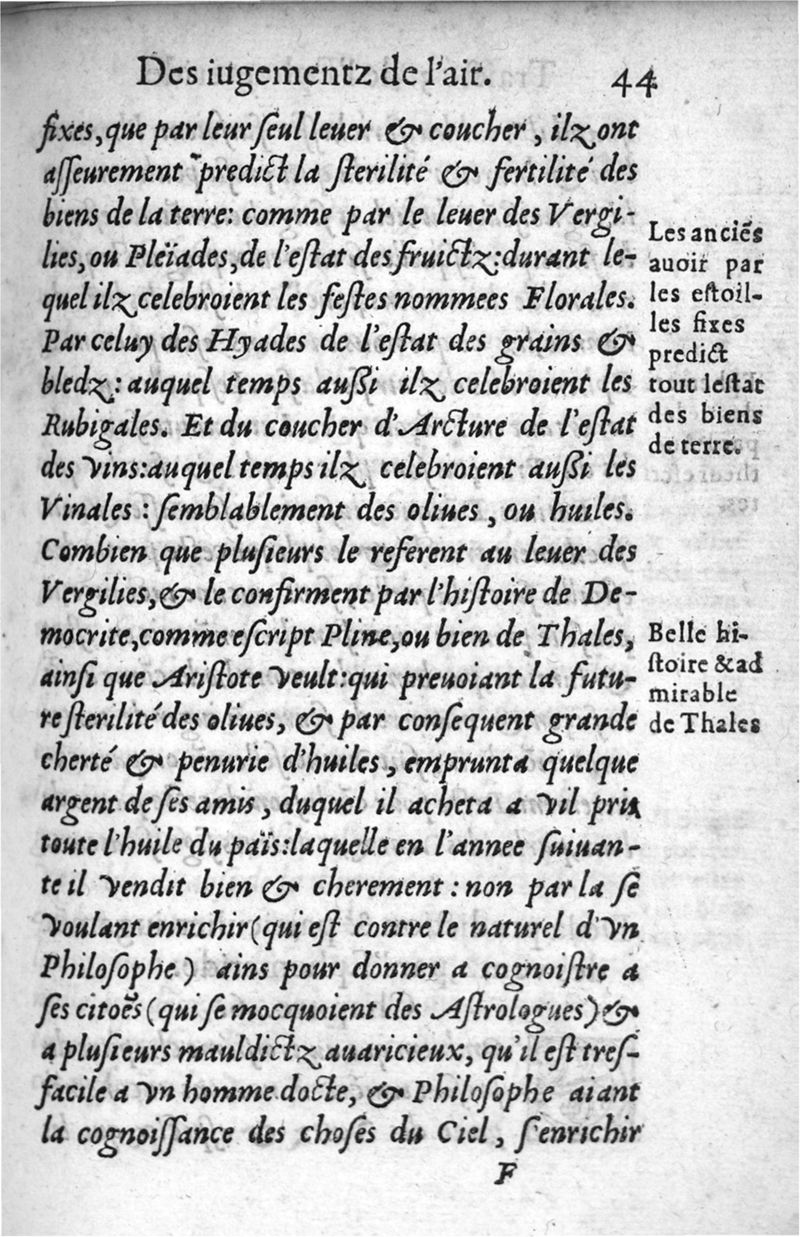 Des iugementz de l'air. 44
fixes, que par leur ſeul leuer & coucher, ilz ont
aſſeurement predict la ſterilité & fertilité des
biens de la terre: comme par le leuer des Vergi-
lies, ou Pleïades, de l'eſtat des fruictz: durant le-
quel ilz celebroient les feſtes nommees Florales.
Par celuy des Hyades de l'eſtat des grains &
bledz: auquel temps außi ilz celebroient les
Rubigales. Et du coucher d'Arcture de l'eſtat
des vins: auquel temps ilz celebroient außi les
Vinales: ſemblablement des oliues, ou huiles.
Combien que pluſieurs le referent au leuer des
Vergilies, & le confirment par l'hiſtoire de De-
mocrite, comme eſcript Pline, ou bien de Thales,
ainſi que Ariſtote veult: qui preuoiant la futu-
re ſterilité des oliues, & par conſequent grande
cherté & penurie d'huiles, emprunta quelque
argent de ſes amis, duquel il acheta a vil prix
toute l'huile du païs: laquelle en l'annee ſuiuan-
te il vendit bien & cherement: non par la ſe
voulant enrichir (qui eſt contre le naturel d'vn
Philoſophe) ains pour donner a cognoiſtre a
ſes citoẽs (qui ſe mocquoient des Aſtrologues) &
a pluſieurs mauldictz auaricieux, qu'il eſt treſ-
facile a vn homme docte, & Philoſophe aiant
la cognoiſſance des choſes du Ciel, ſ'enrichir
F
Les anciẽs
auoir par
les eſtoil-
les fixes
predict
tout leſtat
des biens
de terre.
Belle hi-
ſtoire & ad
mirable
de Thales